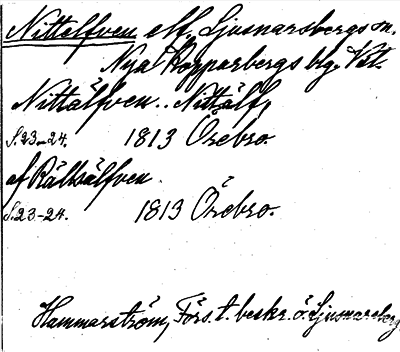 Nittälfven elf, Ljusnarsbergs sn.
Nya Kopparbergs bg, Vstl.
Nittälfven.. Nittälf,
S.23-24. 1813 Örebro.
af Rällsälfven.
S.23-24. 1813 Örebro.
Hammarström, Förs. t. beskr. ö. Ljusnarsberg